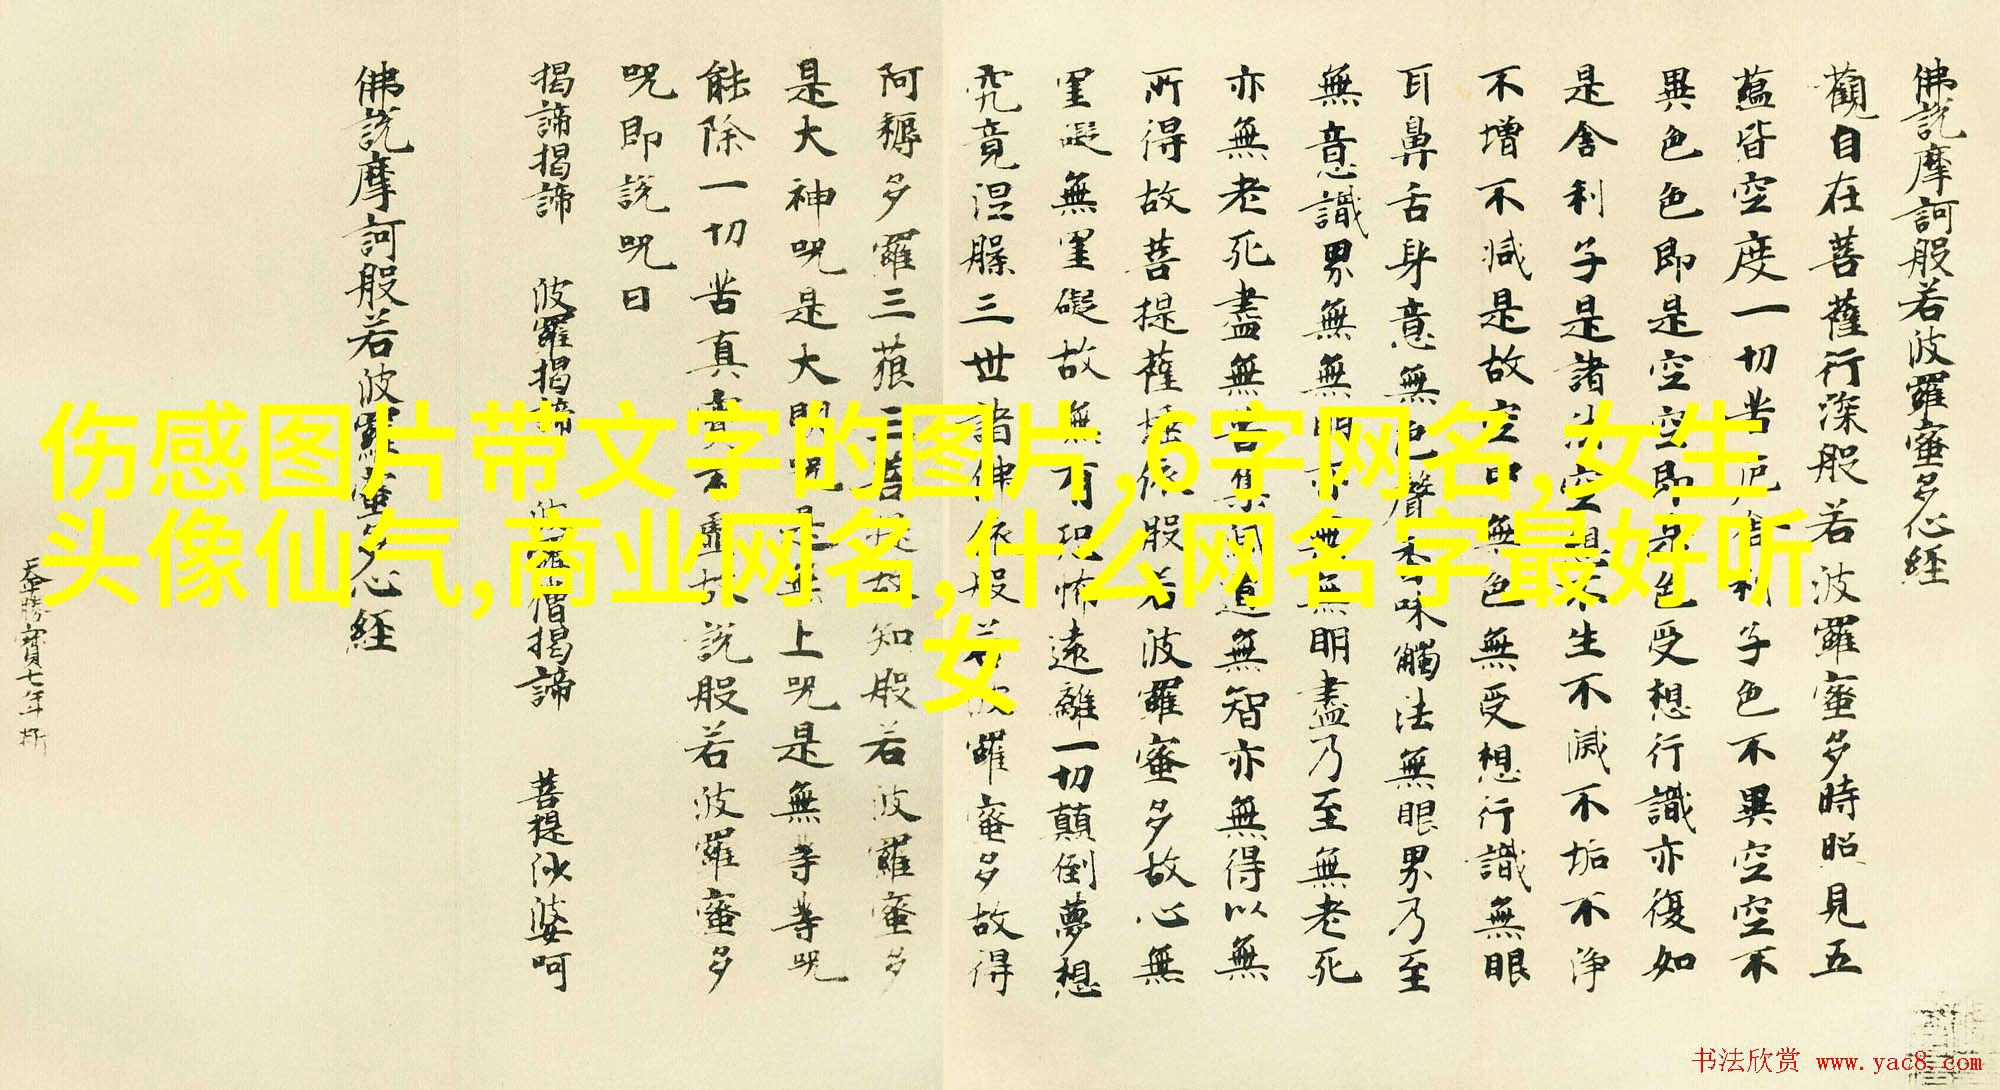 佛說摩訶般若波羅蜜多心經
觀自在菩薩行深般若波羅蜜多時照見五
蘊皆空度一切苦厄舍利子色不異空空不
異色色即是空空即是色受想行識亦復如
是舍利子是諸法空相不生不滅不垢不淨
不增不減是故空中無色無受想行識無眼
耳鼻舌身意無色聲香味觸法無眼界乃至
無意識界無無明亦無無明盡乃至無老死
亦無老死盡無苦集滅道無智亦無得以無
所得故菩提薩埵依般若波羅蜜多故心無
罣礙無罣礙故無有恐怖遠離一切顛倒夢想
究竟涅槃三世諸佛依般若波羅蜜多故得
阿耨多羅三藐三菩提故知般若波羅蜜多
是大神咒是大明咒是無上咒是無等等咒
能除一切苦真實不虛故說般若波羅蜜多
咒即說咒曰
揭諦揭諦 波羅揭諦 波羅僧揭諦 菩提沙婆呵
佛說摩訶般若波羅蜜多心經
天平勝寶七年
伤感图片带文字的图片,6字网名,女生
头像仙气,商业网名,什么网名字最好听
女
书法欣赏 www.yac8.com